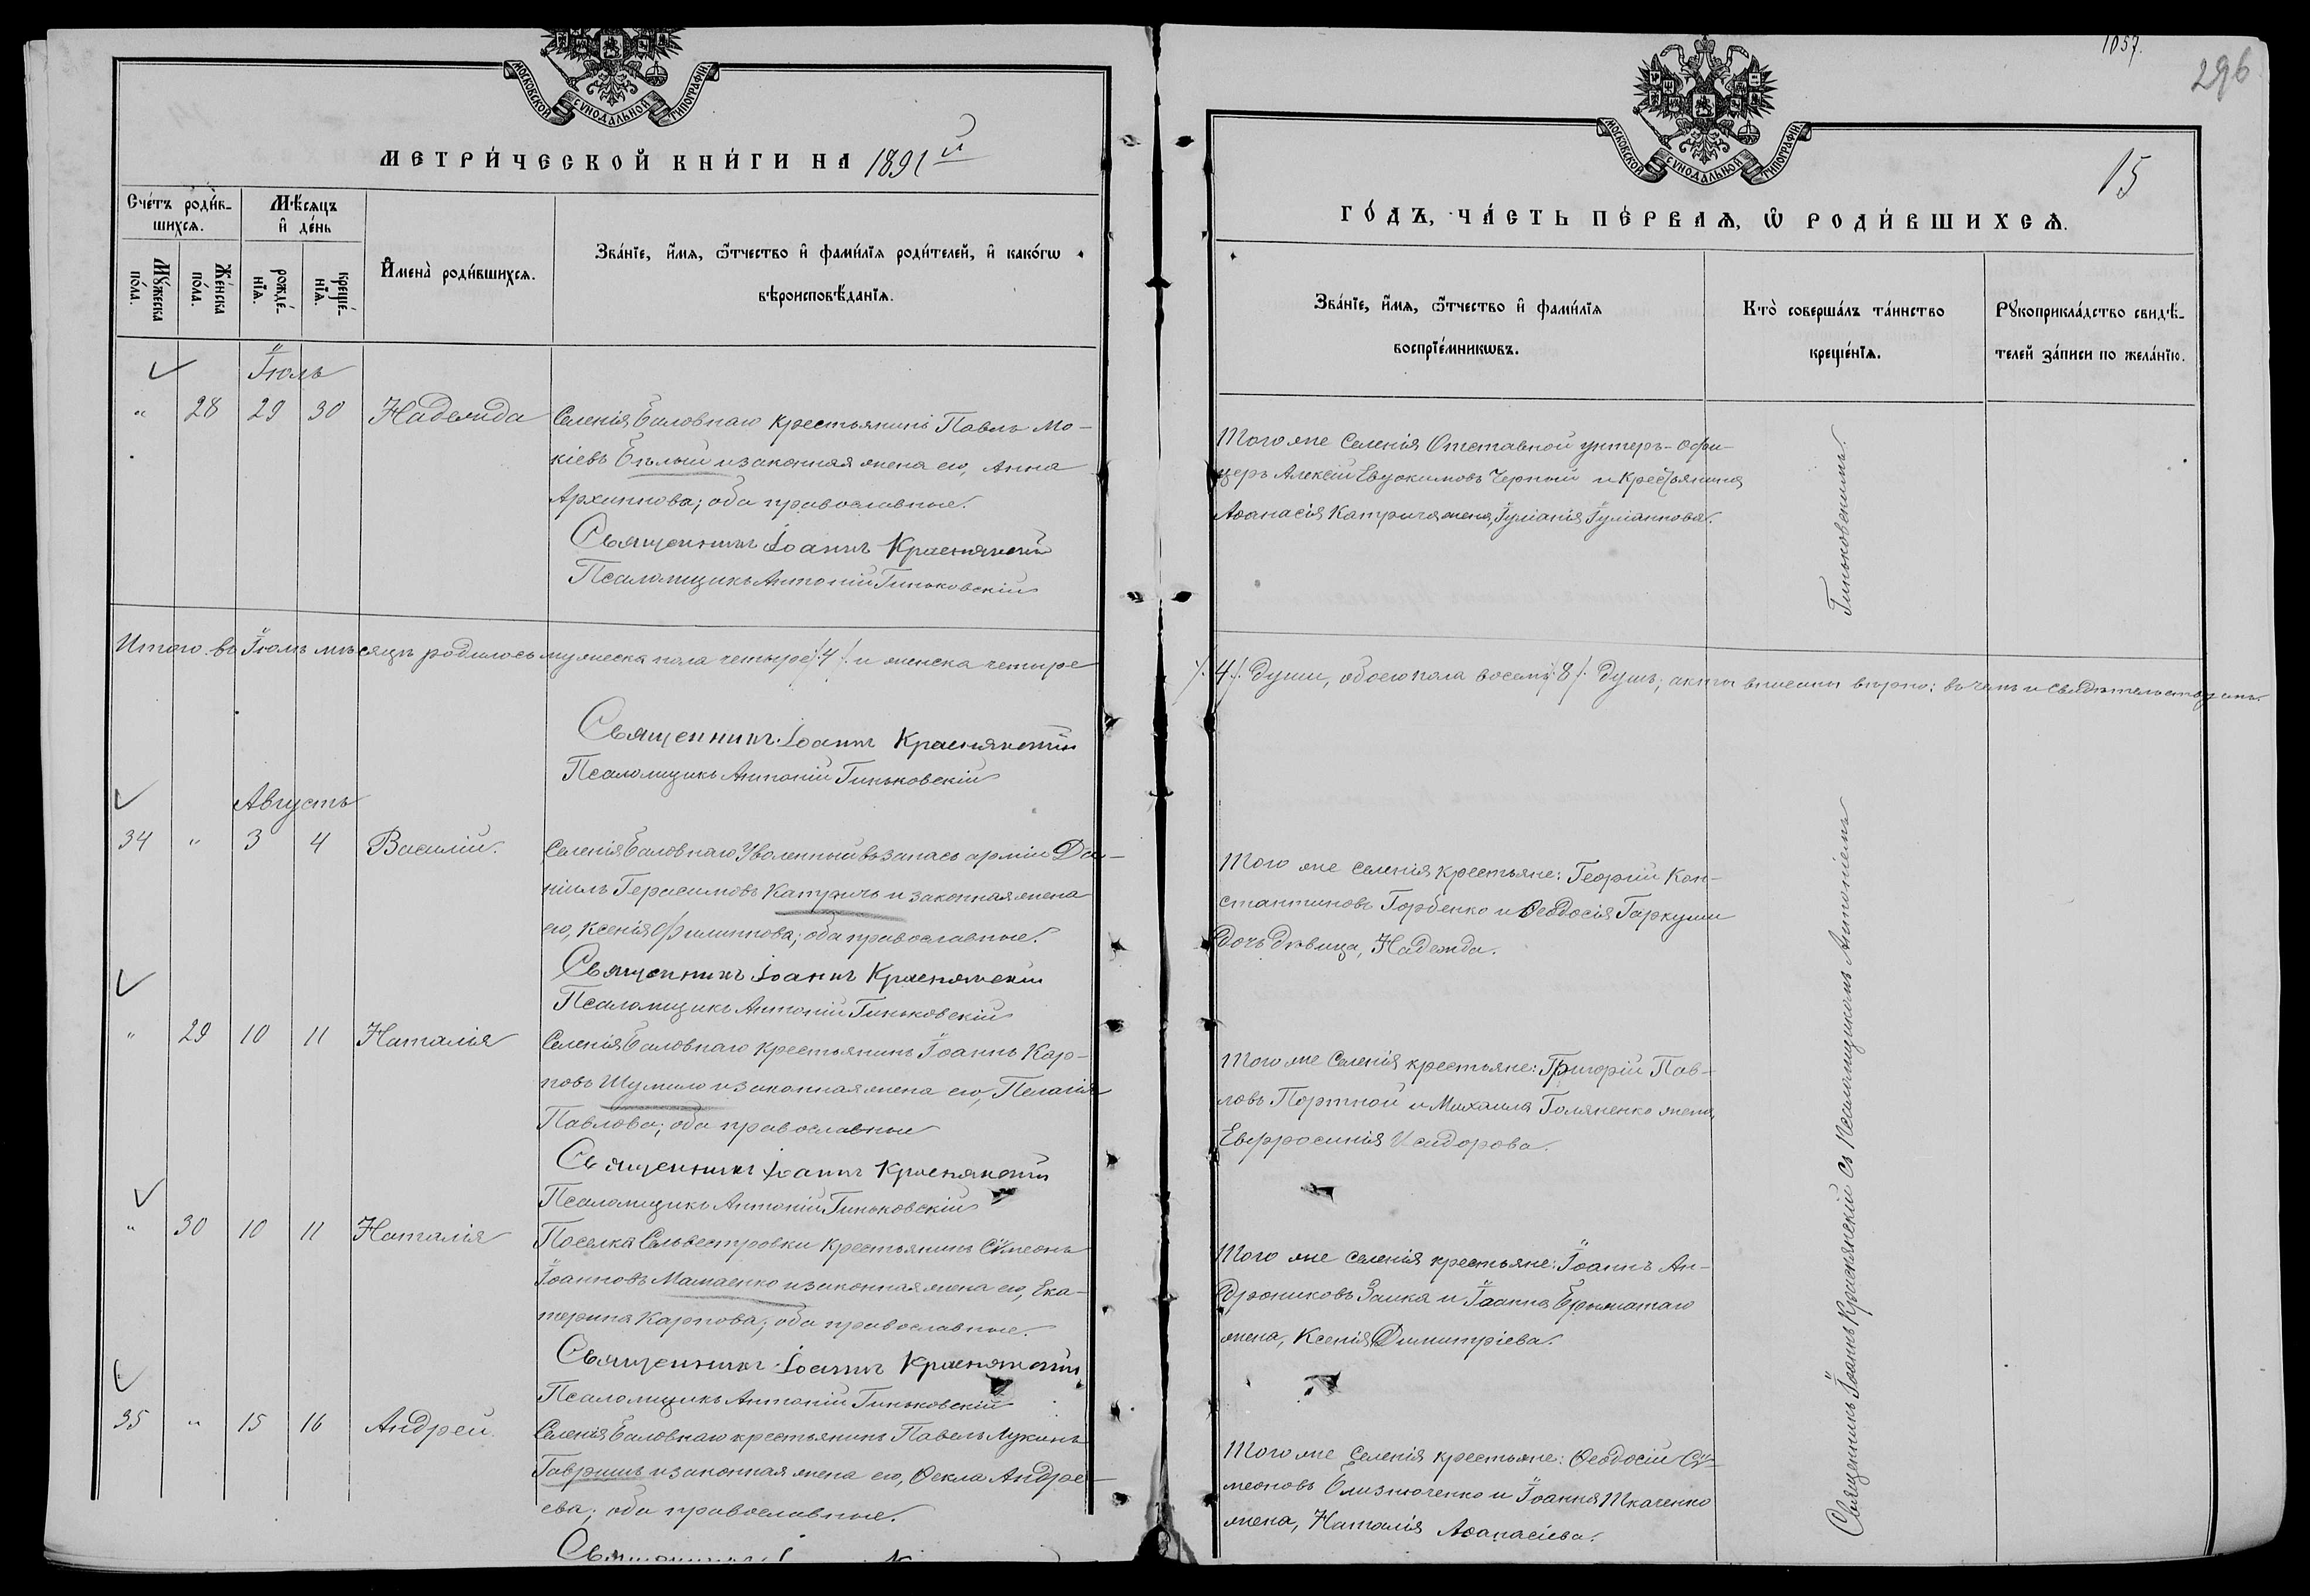 МОСКОВСКОЙ СѴНОДАЛЬНОЙ ТИПОГРАФІИ.
МЕТРИ́ЧЕСКОЙ КНИ́ГИ НА 1891 й
Сче́тъ роди́в-
шихсѧ.
Мѣ́сѧцъ
и҆ де́нь
Мꙋ́жеска
по́ла.
Же́нска
по́ла.
рожде́-
нїѧ.
креще́-
нїѧ.
И҆мена̀ роди́вшихсѧ.
Зва́нїе, и҆́мѧ, ѻ҆́тчество и҆ фами́лїѧ роди́телей, и҆ како́гѡ
вѣроисповѣ́данїѧ.
Іюль
" 28 29 30 Надежда
Селенія Баловнаго крестьянинъ Павелъ Мо-
кіевъ Бѣлый и законная жена его, Анна
Архиппова; оба православные.
Священникъ Іоаннъ Краснянскій
Псаломщикъ Антоній Гиньковскій
Итого въ Іюлѣ мѣсяцѣ родилось мужеска пола четыре /:4:/ и женска четыре
Священникъ Іоаннъ Краснянскій
Псаломщикъ Антоній Гиньковскій
Августъ
34 " 3 4 Василій.
Селенія Баловнаго Уволенный въ запасъ арміи Да-
ніилъ Герасимовъ Катричъ и законная жена
его, Ксенія Филиппова; оба православные.
Священникъ Іоаннъ Краснянскій
Псаломщикъ Антоній Гиньковскій
" 29 10 11 Наталія
Селенія Баловнаго крестьянинъ Іоаннъ Кар-
повъ Шумило и законная жена его, Пелагія
Павлова; оба православные
Священникъ Іоаннъ Краснянскій
Псаломщикъ Антоній Гиньковскій
" 30 10 11 Наталія
Поселка Сельвестровки крестьянинъ Сѵмеонъ
Іоанновъ Мамаенко и законная жена его, Ека-
терина Карпова; оба православные.
Священникъ Іоаннъ Краснянскій
Псаломщикъ Антоній Гиньковскій
35 " 15 16 Андрей.
Селенія Баловнаго крестьянинъ Павелъ Лукинъ
Гавришъ и законная жена его, Ѳекла Андре-
ева; оба православные.
1057.
296
15
МОСКОВСКОЙ СѴНОДАЛЬНОЙ ТИПОГРАФІИ.
ГО́ДЪ, ЧА́СТЬ ПЕ́РВАѦ, Ѡ РОДИ́ВШИХСѦ.
Зва́нїе, и҆́мѧ, ѻ҆́тчество и҆ фами́лїѧ
воспрїе́мникѡвъ.
Кто̀ соверша́лъ та́инство
креще́нїѧ.
Рꙋкоприкла́дство свидѣ́-
телей за́писи по жела́нїю.
Того же Селенія Отставной унтеръ-офи-
церъ Алексій Евдокимовъ Черный и Крестьянина
Аѳанасія Катрича жена, Іуліанія Іуліаннова.
/:4:/ души, обоего пола восемь /:8:/ душъ; акты вписаны вѣрно: въ чемъ и свидѣтельствуемъ.
Того же селенія крестьяне: Георгій Кон-
стантиновъ Горбенко и Ѳеодосія Гаркуши
дочь дѣвица, Надежда.
Того же Селенія крестьяне: Григорій Пав-
ловъ Портной и Михаила Голяненко жена,
Евфросинія Исидорова.
Того же селенія крестьяне: Іоаннъ Ан-
дрониковъ Заика и Іоанна жена, Ксенія Димитріева.
Того же Селенія крестьяне: Ѳеодосій Сѵ-
меоновъ Близнюченко и Іоанна Ткаченко
жена, Наталія Аѳанасіева.
Священникъ Іоаннъ Краснянскій съ Псаломщикомъ Антоніемъ
Гиньковскимъ.